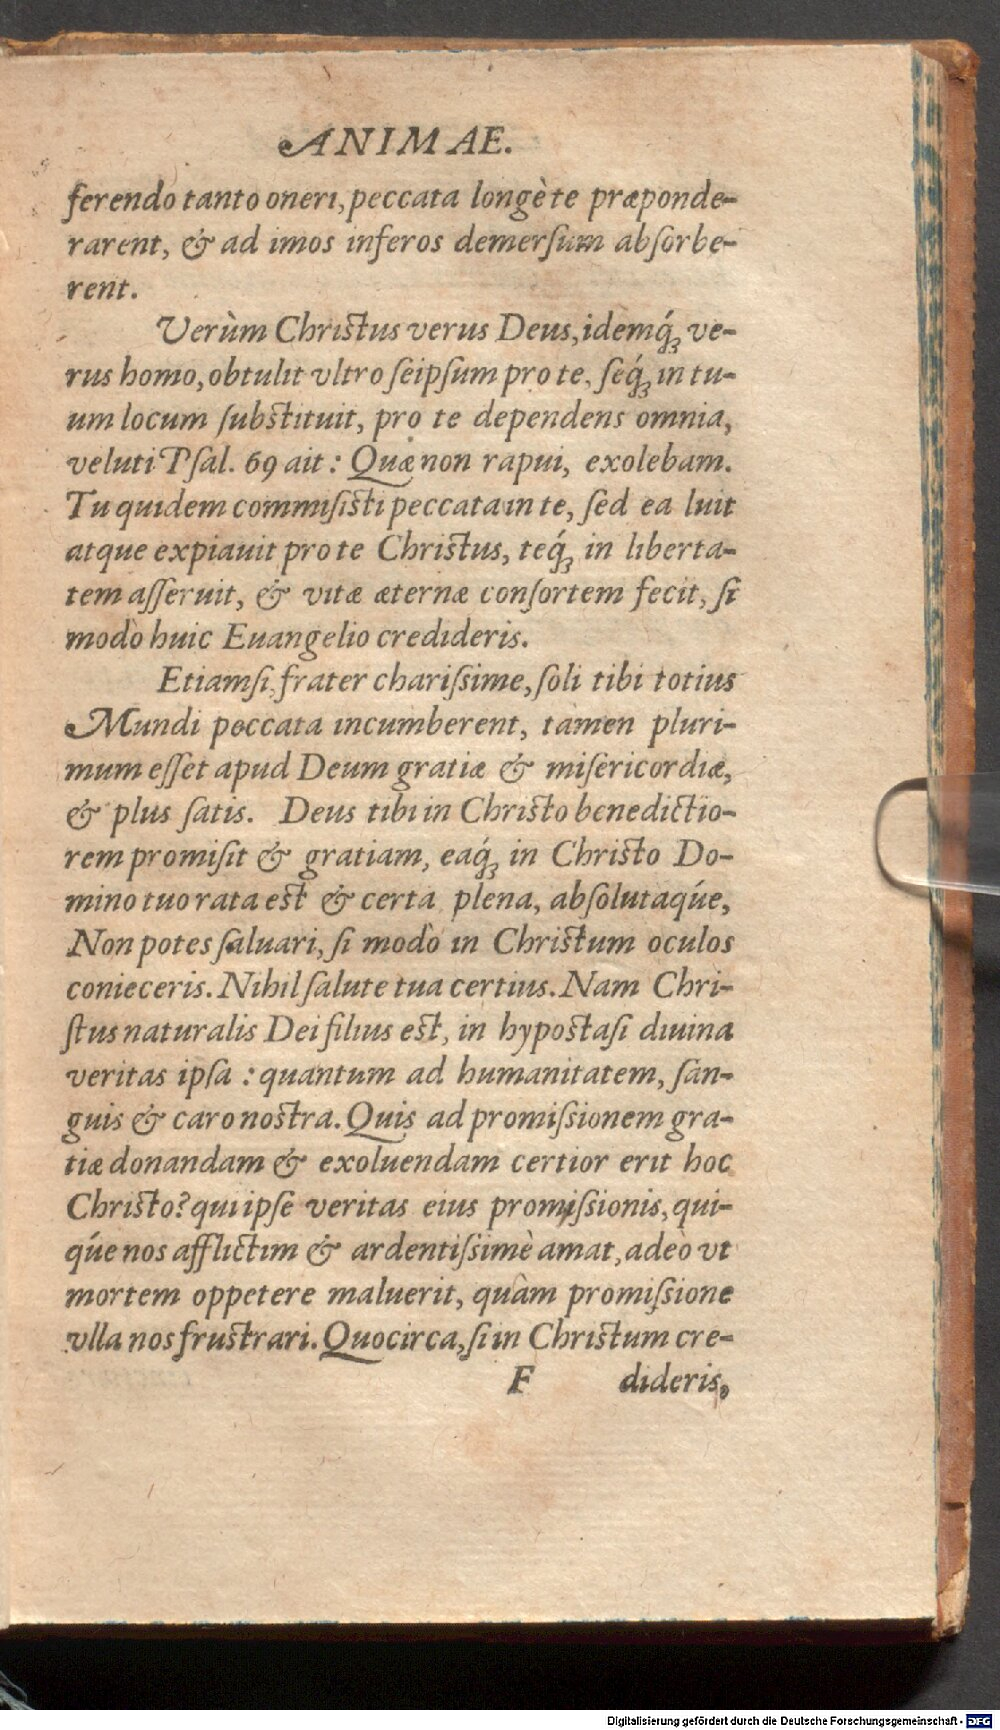 ANIMAE.
ferendo tanto oneri, peccata longè te præponde-
rarent, & ad imos inferos demersum absorbe-
rent.
Verùm Christus verus Deus, idemq́ꝫ ve-
rus homo, obtulit vltro seipsum pro te, seq́ꝫ in tu-
um locum substituit, pro te dependens omnia,
veluti Psal. 69 ait: Quæ non rapui, exolebam.
Tu quidem commisisti peccata in te, sed ea luit
atque expiauit pro te Christus, teq́ꝫ in liberta-
tem asseruit, & vitæ æternæ consortem fecit, si
modò huic Euangelio credideris.
Etiamsi, frater charissime, soli tibi totius
Mundi peccata incumberent, tamen pluri-
mum esset apud Deum gratiæ & misericordiæ,
& plus satis. Deus tibi in Christo benedictio-
rem promisit & gratiam, eaq́ꝫ in Christo Do-
mino tuo rata est & certa plena, absolutaq́ue,
Non potes saluari, si modò in Christum oculos
conieceris. Nihil salute tua certius. Nam Chri-
stus naturalis Dei filius est, in hypostasi diuina
veritas ipsa: quantum ad humanitatem, san-
guis & caro nostra. Quis ad promissionem gra-
tiæ donandam & exoluendam certior erit hoc
Christo? qui ipse veritas eius promissionis, qui-
q́ue nos afflictim & ardentissimè amat, adeò vt
mortem oppetere maluerit, quàm promissione
vlla nos frustrari. Quocirca, si in Christum cre-
F dideris,
Digitalisierung gefördert durch die Deutsche Forschungsgemeinschaft - DFG